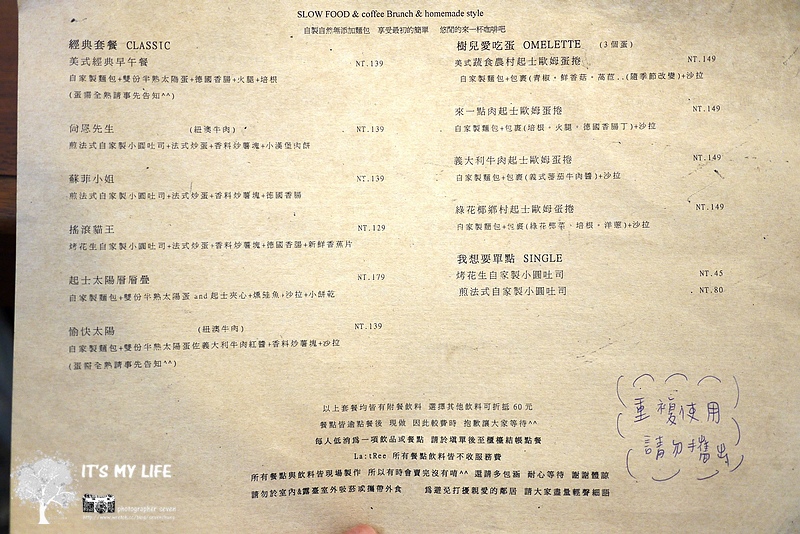 SLOW FOOD & coffee Brunch & homemade style
自製自然無添加麵包 享受最初的簡單 悠閒的來一杯咖啡吧
經典套餐 CLASSIC
美式經典早午餐 NT.139
自家製麵包+雙份半熟太陽蛋+德國香腸+火腿+培根
(蛋需全熟請事先告知^^)
向恩先生 (紐澳牛肉) NT.139
煎法式自家製小圓吐司+法式炒蛋+香料炒薯塊+小漢堡肉餅
蘇菲小姐 NT.139
煎法式自家製小圓吐司+法式炒蛋+香料炒薯塊+德國香腸
搖滾貓王 NT.129
烤花生自家製小圓吐司+法式炒蛋+香料炒薯塊+德國香腸+新鮮香蕉片
起士太陽層層疊 NT.179
自家製麵包+雙份半熟太陽蛋 and 起士夾心+燻鮭魚+沙拉+小餅乾
愉快太陽 (紐澳牛肉) NT.139
自家製麵包+雙份半熟太陽蛋佐義大利牛肉紅醬+香料炒薯塊+沙拉
(蛋需全熟請事先告知^^)
樹兒愛吃蛋 OMELETTE (3個蛋)
美式蔬食農村起士歐姆蛋捲 NT.149
自家製麵包+包裹(青椒，鮮香菇，萵苣..(隨季節改變)+沙拉
來一點肉起士歐姆蛋捲 NT.149
自家製麵包+包裹(培根，火腿，德國香腸丁)+沙拉
義大利牛肉起士歐姆蛋捲 NT.149
自家製麵包+包裹(義式蕃茄牛肉醬)+沙拉
綠花椰鄉村起士歐姆蛋捲 NT.149
自家製麵包+包裹(綠花椰菜，培根，洋蔥)+沙拉
我想要單點 SINGLE
烤花生自家製小圓吐司 NT.45
煎法式自家製小圓吐司 NT.80
以上套餐均皆有附餐飲料 選擇其他飲料可折抵 60 元
餐點皆逾點餐後 現做 因此較費時 抱歉讓大家等待^^
每人低消為一項飲品或餐點 請於填單後至櫃檯結帳點餐
La:tRee 所有餐點飲料皆不收服務費
所有餐點與飲料皆現場製作 所以有時會賣完沒有唷^^ 還請多包涵 耐心等待 謝謝體諒
請勿於室內&露臺室外吸菸或攜帶外食 為避免打擾親愛的鄰居 請大家盡量輕聲細語
重複使用
請勿攜出
IT'S MY LIFE
photographer seven